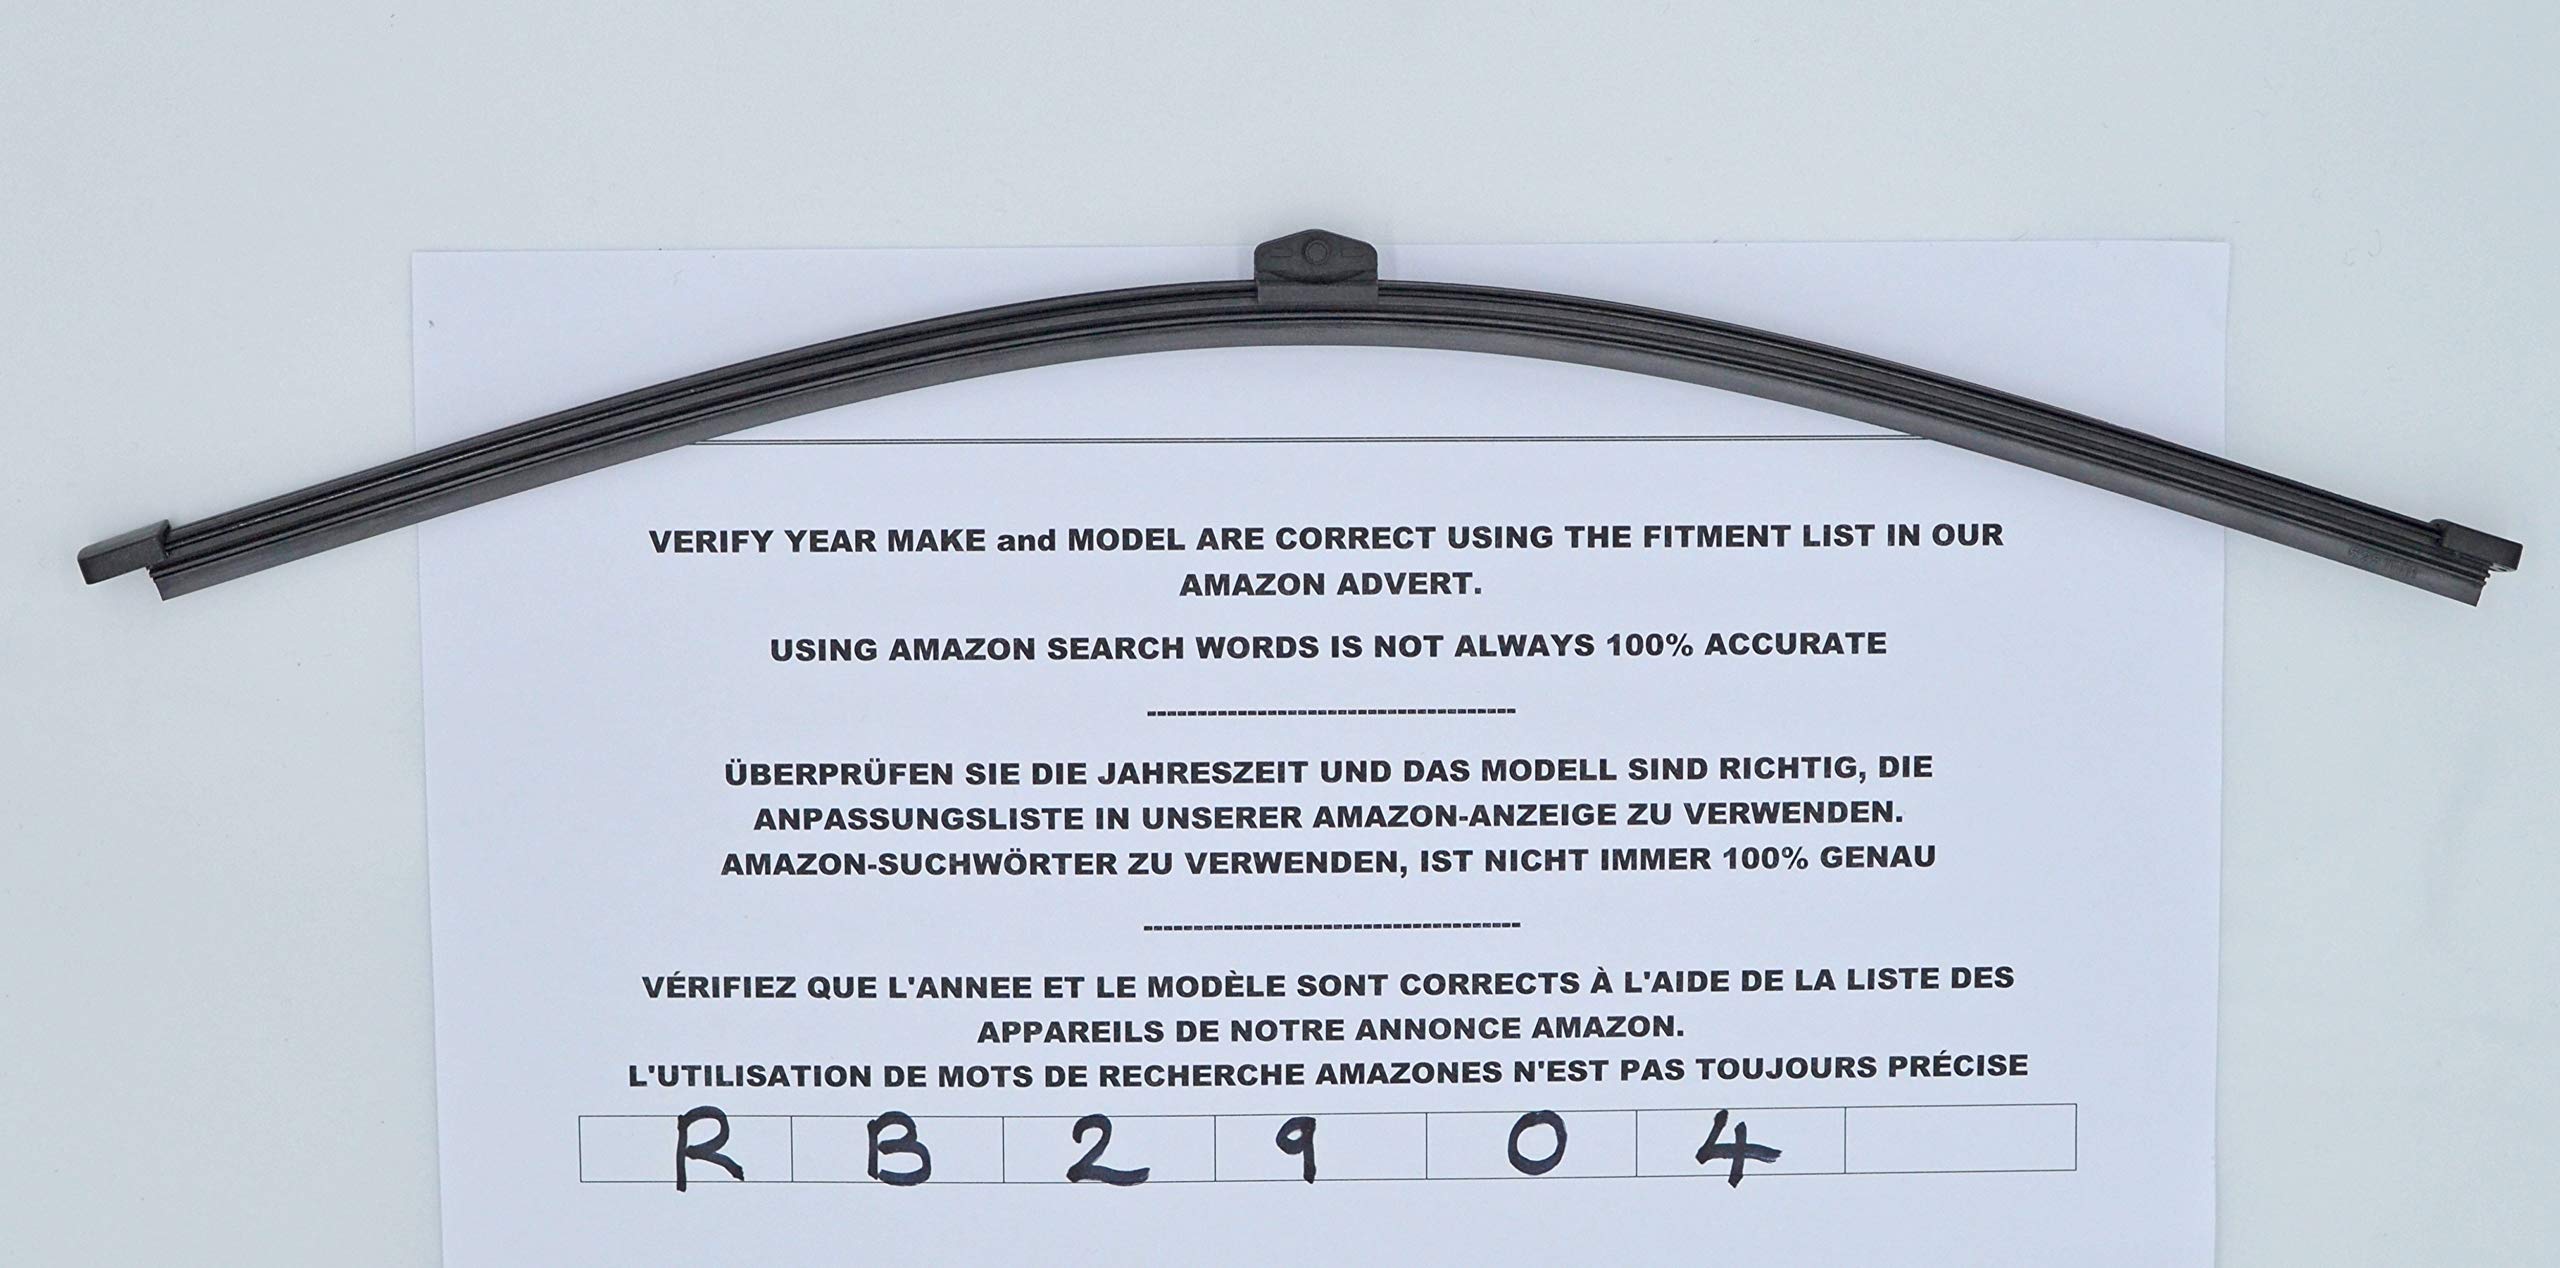 VERIFY YEAR MAKE and MODEL ARE CORRECT USING THE FITMENT LIST IN OUR
AMAZON ADVERT.
USING AMAZON SEARCH WORDS IS NOT ALWAYS 100% ACCURATE
-------------------------------------
ÜBERPRÜFEN SIE DIE JAHRESZEIT UND DAS MODELL SIND RICHTIG, DIE
ANPASSUNGSLISTE IN UNSERER AMAZON-ANZEIGE ZU VERWENDEN.
AMAZON-SUCHWÖRTER ZU VERWENDEN, IST NICHT IMMER 100% GENAU
-------------------------------------
VÉRIFIEZ QUE L'ANNEE ET LE MODÈLE SONT CORRECTS À L'AIDE DE LA LISTE DES
APPAREILS DE NOTRE ANNONCE AMAZON.
L'UTILISATION DE MOTS DE RECHERCHE AMAZONES N'EST PAS TOUJOURS PRÉCISE
R B 2 9 0 4